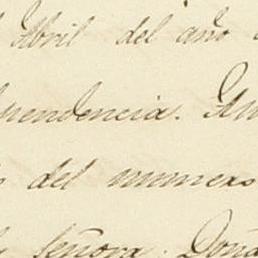 Abril del año
pendencia.
del numero
Señora. Doña